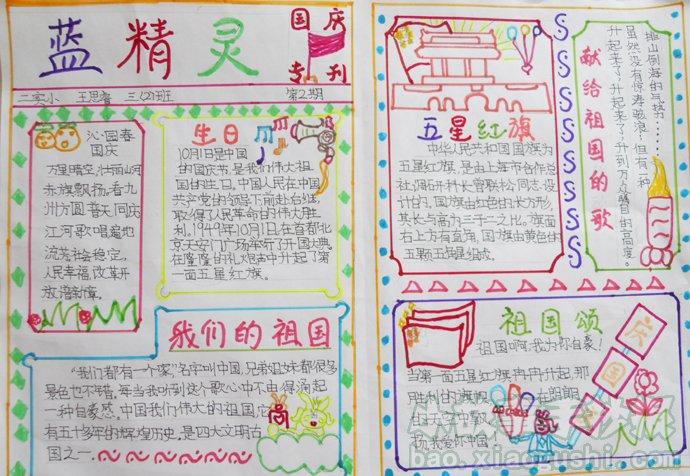 蓝精灵
国庆
专刊
二实小 王思睿 三(2)班 第2期
沁园春
国庆
万里晴空,壮丽山河
赤旗飘扬,看九
州方圆,普天同庆
江河歌唱遍地
流芳社会稳定,
人民幸福,改革开
放谱新章。
生日
10月1日是中国
的国庆节,是我们伟大祖
国的生日,中国人民在中国
共产党的领导下前赴后继,
取得了人民革命的伟大胜
利,1949年10月1日,在首都北
京天安门广场举行了开国大典,
在隆隆的礼炮声中升起了第
一面五星红旗。
我们的祖国
“我们都有一个家”名字叫中国,兄弟姐妹都很多
景色也不错,每当我听到这个歌心中不由得涌起
一种自豪感,中国我们伟大的祖国,它
有五十多年的辉煌历史,是四大文明古
国之一
五星红旗
中华人民共和国国旗为
五星红旗,是由上海市合作总
社,调研科长曾联松同志设
计的。国旗由红色的长方形,
其长与高为三与二之比,旗面
右上方有直角,国旗由黄色的
五颗五角星组成。
献给祖国的歌
排山倒海的气势……
虽然没有惊涛骇浪!但有一种
升起来了,升起来了!升到万众瞩目的高度。
祖国颂
祖国啊,我为你自豪!
当第一面五星红旗冉冉升起,那
胜利的旗帜
扬,我爱你中国
国庆
bao.xiaozushi.com